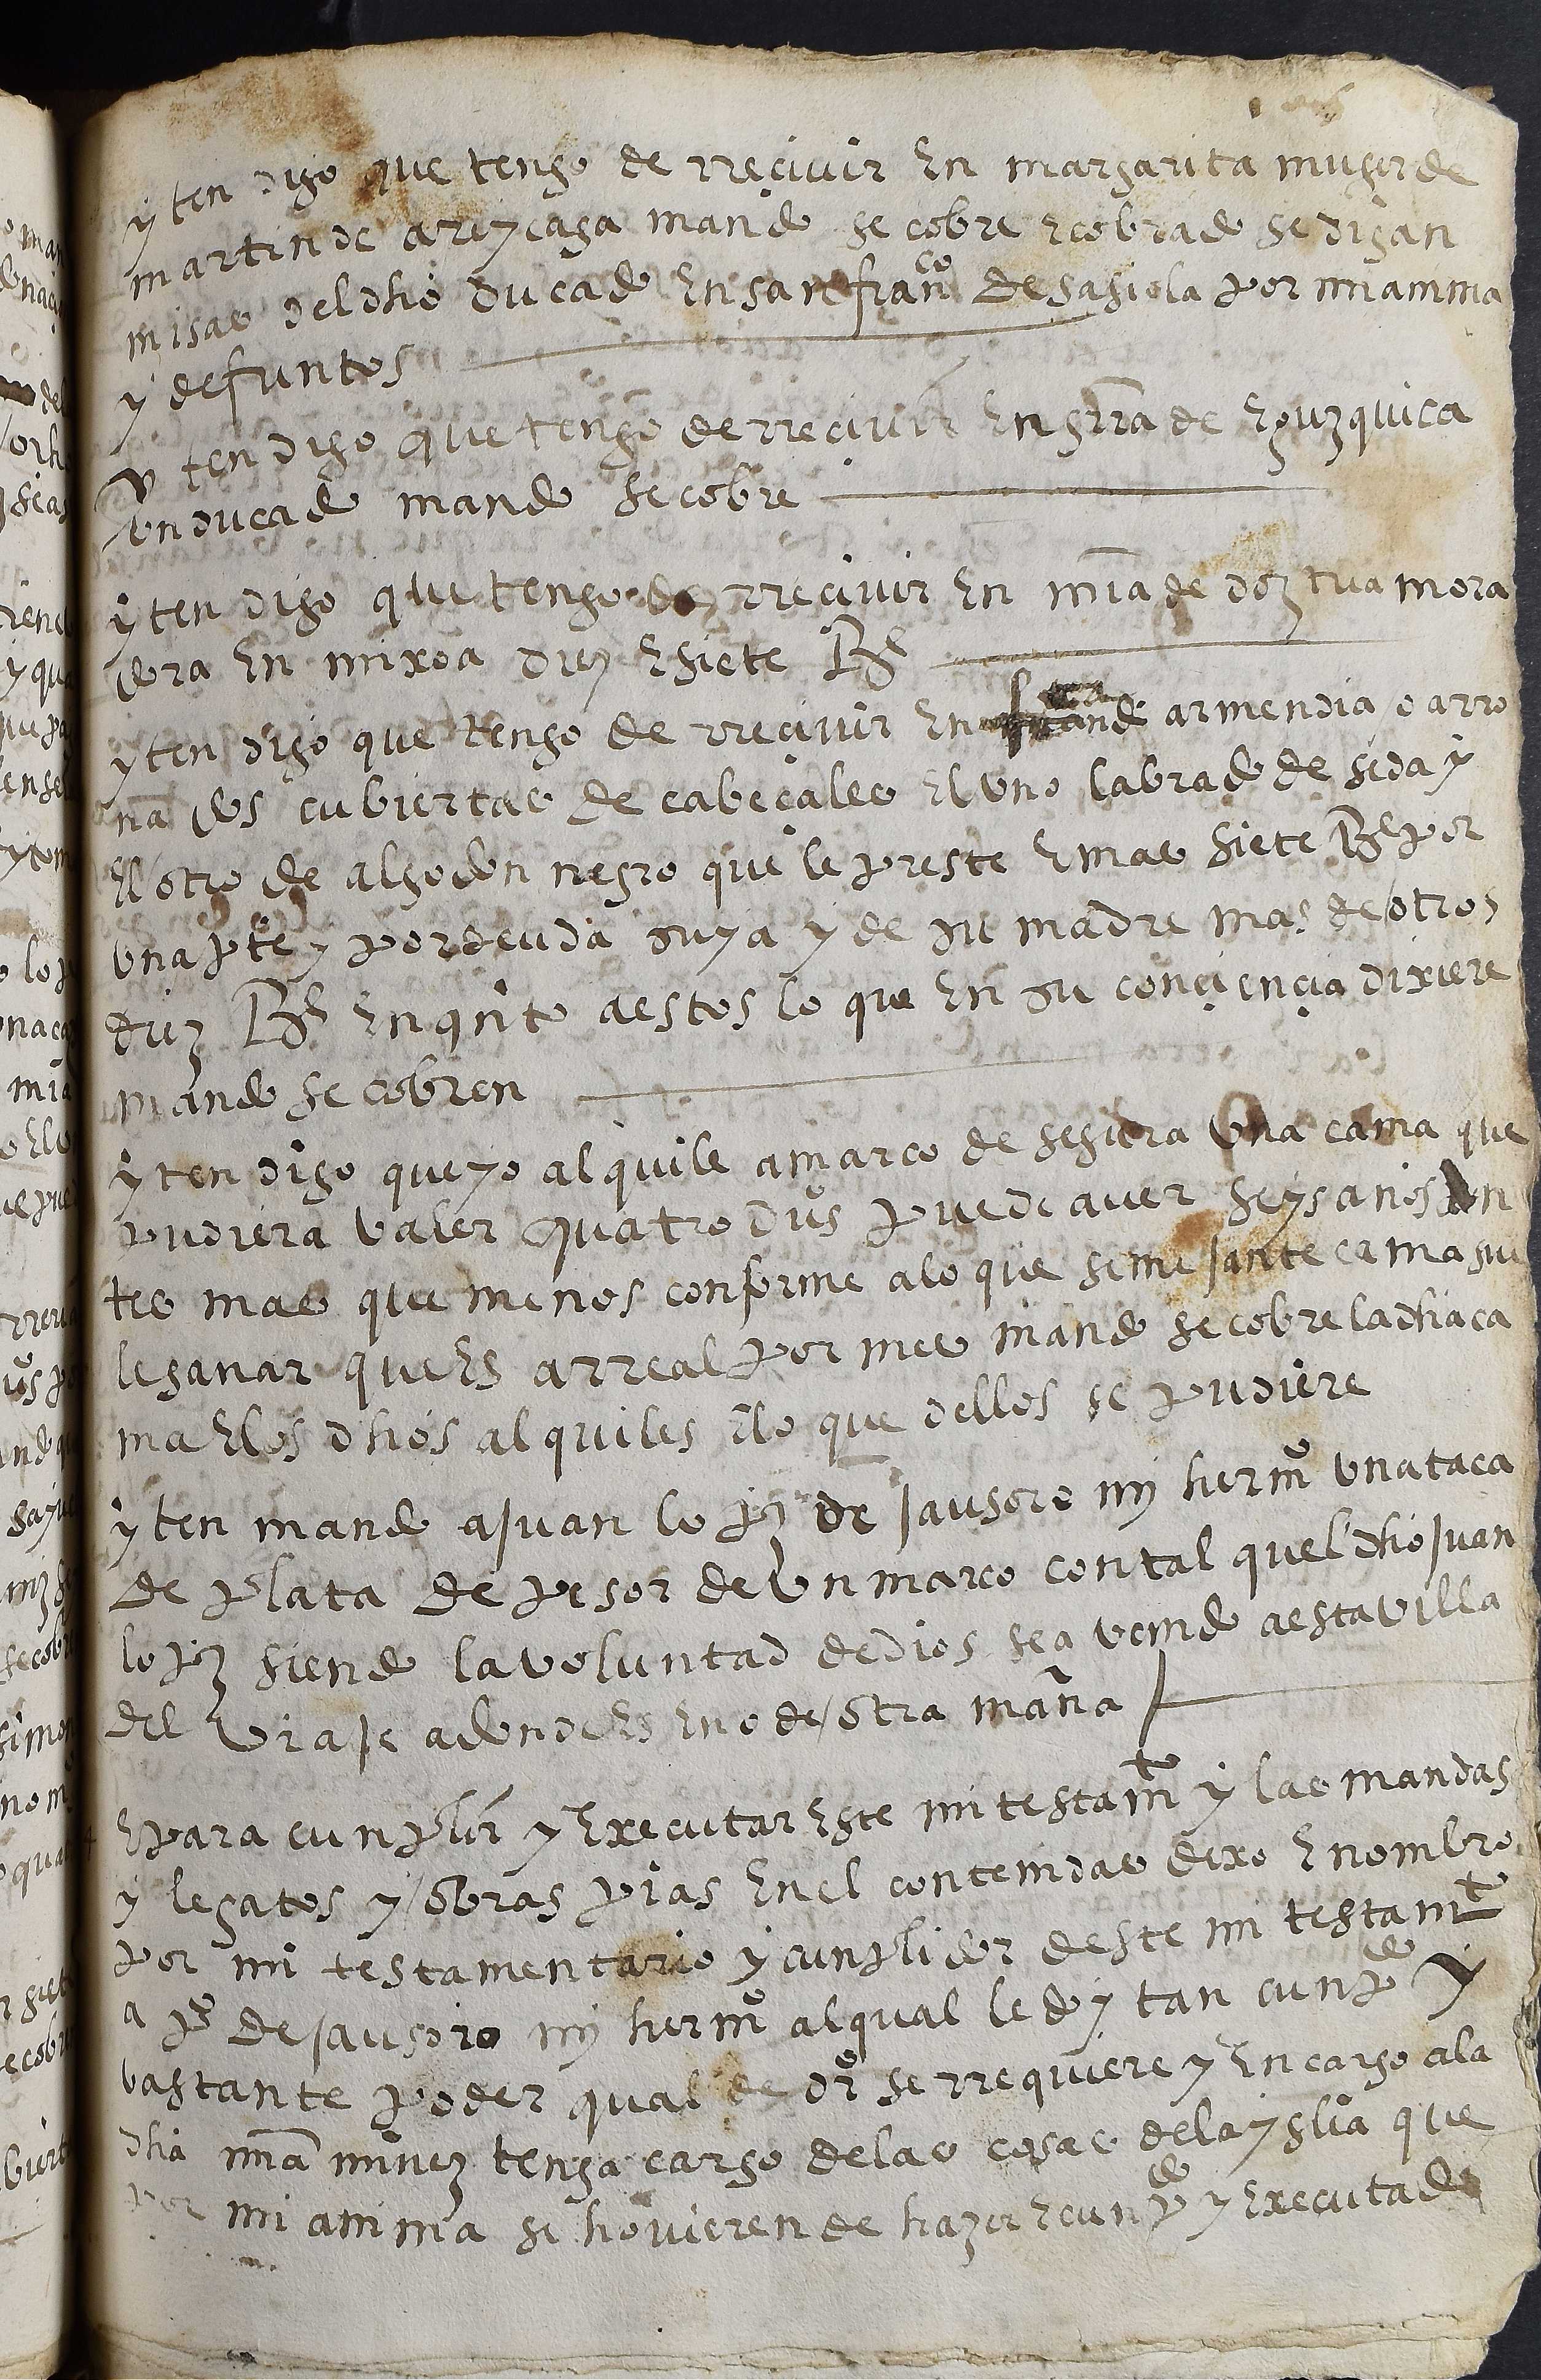 yten digo que tengo de rrecivir En margarita muger de
martin de areyçaga mando se cobre E cobrado se digan
misas del dho ducado En san franco de sasiola por mi anima
y defuntos
yten digo que tengo de rrecivir En grra de Eguzquiça
un ducado mando se cobre
yten digo que tengo de rrecivir En mia de doztua mora
dora En mixoa diez E siete Rs
yten digo que tengo de rrecivir En armendia o arro
na dos cubiertas de cabeçales El uno labrado de seda y
El otro de algodon negro que le preste E mas siete Rs por
una pte y por deuda suya y de su madre mas de otros
diez Rs En qnto a estos lo que En su conçiençia dixere
mando se cobren
yten digo que yo alquile a marco de segura una cama que
pudiera valer quatro dus puede aver seys años an
tes mas que menos conforme a lo que semejante cama sue
le ganar que Es a rreal por mes mando se cobre la dha ca
ma E los dhos alquiles E lo que dellos se pudiere
yten mando a juan lopz de jausoro mi hermo una taça
de plata de pesor de un marco con tal quel dho juan
lopz siendo la voluntad de dios sea venido a esta villa
del viaje a donde Es E no de otra mana
E para cunplir y Executar Este mi testamto y las mandas
y legatos y obras pias En el contenidas dexo E nombro
por mi testamentario y cunplidor deste mi testamto
a po de jausoro mi hermo al qual le doy tan cunpdo y
bastante poder qual de dro se rrequiere y Encargo a la
dha mia minez tenga cargo de las cosas de la yglia que
por mi anima se hovieren de hazer E cunpdo y Executado